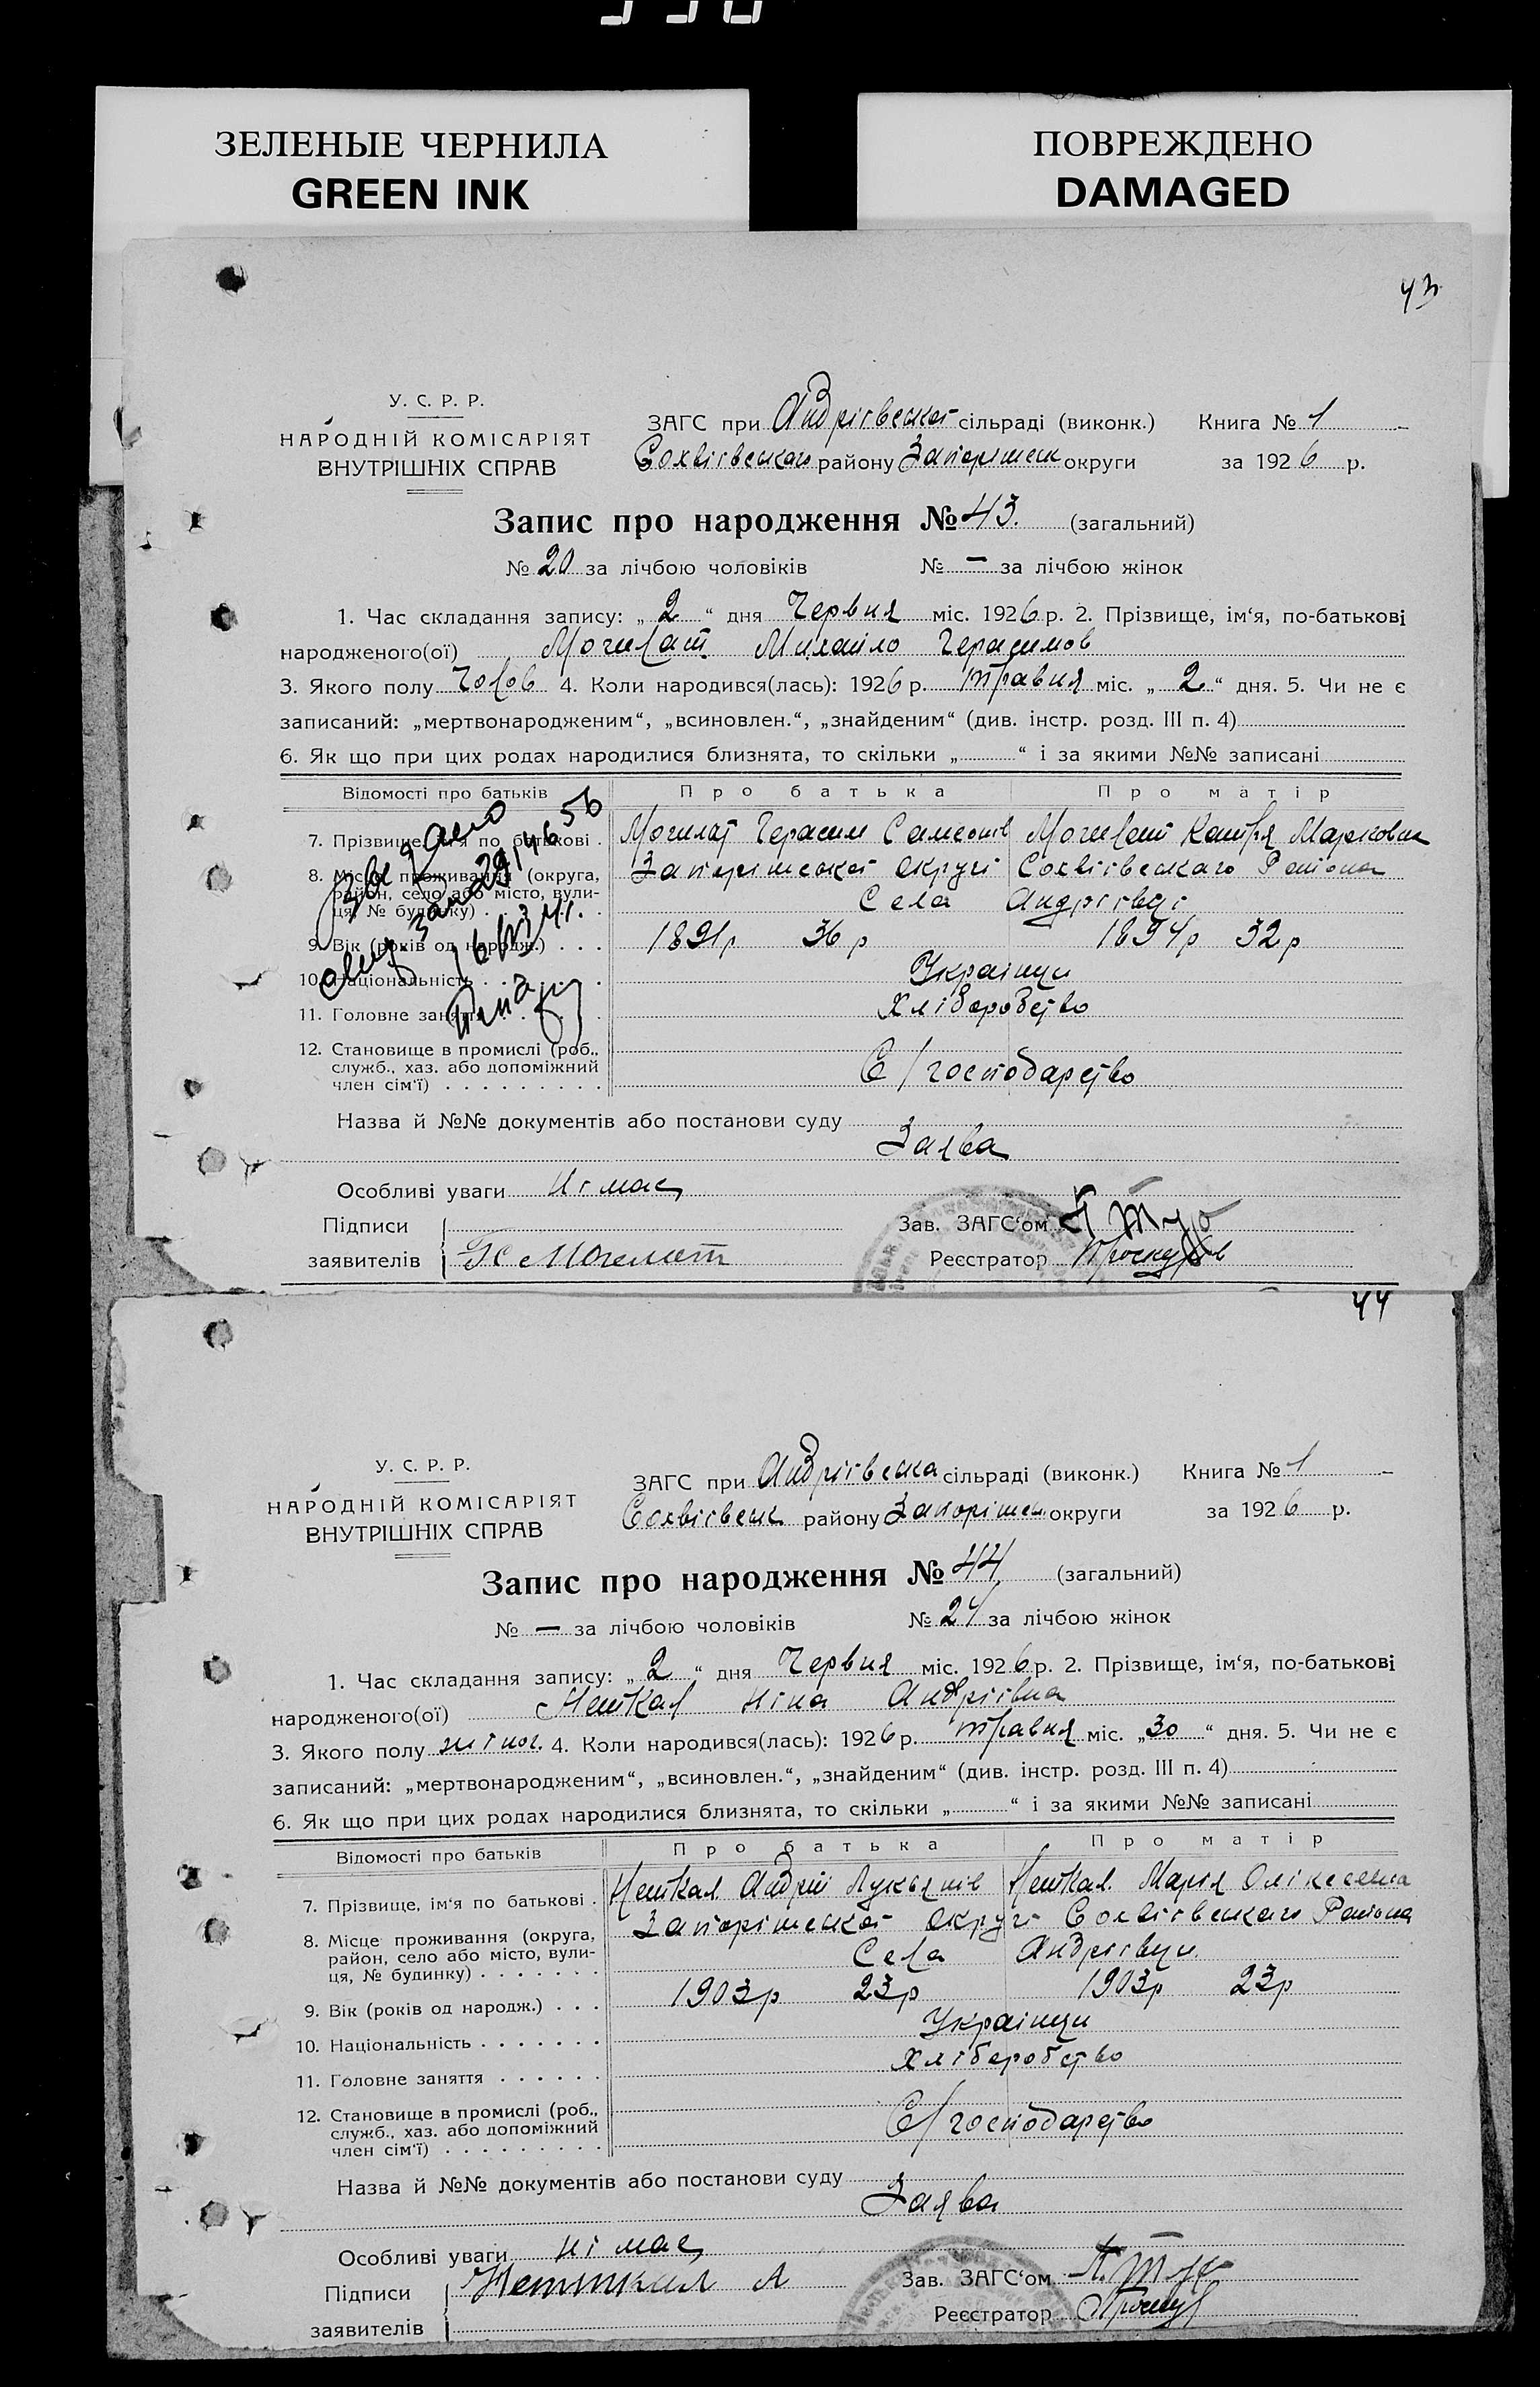 ЗЕЛЕНЫЕ ЧЕРНИЛА
GREEN INK
ПОВРЕЖДЕНО
DAMAGED
43
У. С. Р. Р.
НАРОДНІЙ КОМІСАРІЯТ
ВНУТРІШНІХ СПРАВ
ЗАГС при Андріївськой сільраді (виконк.) Книга № 1
району Запоріжськ округи за 1926 р.
Запис про народження № 43. (загальний)
№ 20 за лічбою чоловіків № — за лічбою жінок
1. Час складання запису: „ 2 “ дня Червня міс. 1926 р. 2. Прізвище, ім‘я, по-батькові
народженого(ої) Могилат Михайло Герасимов
3. Якого полу Чолов 4. Коли народився(лась): 1926 р. травня міс. „ 2 “ дня. 5. Чи не є
записаний: „мертвонародженим“, „всиновлен.“, „знайденим“ (див. інстр. розд. III п. 4)
6. Як що при цих родах народилися близнята, то скільки „ “ і за якими №№ записані
Відомості про батьків Про батька Про матір
7. Прізвище, ім‘я по батькові . Могилат Герасим Самсонів Могилат Катря Марковна
8. Місце проживання (округа, район, село або місто, вулиця, № будинку) Запоріжської округі Района
Села Андріївці
9. Вік (років од народж.) . . . 1891р 36 р 1894р 32р
10. Національність Українци
11. Головне заняття Хліборобство
12. Становище в промислі (роб.,
служб., хаз. або допоміжний
член сім‘ї) . . . . . . . . . С/господарство
Назва й №№ документів або постанови суду
Заява
Особливі уваги Ні має
Підписи Зав. ЗАГС‘ом
заявителів Могилат Реєстратор
44
У. С. Р. Р.
НАРОДНІЙ КОМІСАРІЯТ
ВНУТРІШНІХ СПРАВ
ЗАГС при Андріївська сільраді (виконк.) Книга № 1
району Запоріжськ округи за 1926 р.
Запис про народження № 44 (загальний)
№ — за лічбою чоловіків № 24 за лічбою жінок
1. Час складання запису: „ 2 “ дня Червня міс. 1926 р. 2. Прізвище, ім‘я, по-батькові
народженого(ої) Нешкал Ніна Андріівна
3. Якого полу жіноч. 4. Коли народився(лась): 1926 р. травня міс. „ 30 “ дня. 5. Чи не є
записаний: „мертвонародженим“, „всиновлен.“, „знайденим“ (див. інстр. розд. III п. 4)
6. Як що при цих родах народилися близнята, то скільки „ “ і за якими №№ записані
Відомості про батьків Про батька Про матір
7. Прізвище, ім‘я по батькові . Нешкал Андрій Лукьянів Нешкал Марія
8. Місце проживання (округа, Запоріжської округі Района
район, село або місто, вули-
ця, № будинку) . . . . . . . Села Андріівци
9. Вік (років од народж.) . . . 1903р 23р 1903р 23р
10. Національність . . . . . . . Українци
11. Головне заняття . . . . . . Хліборобство
12. Становище в промислі (роб.,
служб., хаз. або допоміжний
член сім‘ї) . . . . . . . . . С/господарство
Назва й №№ документів або постанови суду
Заява
Особливі уваги Ні має
Підписи Зав. ЗАГС‘ом
заявителів Реєстратор